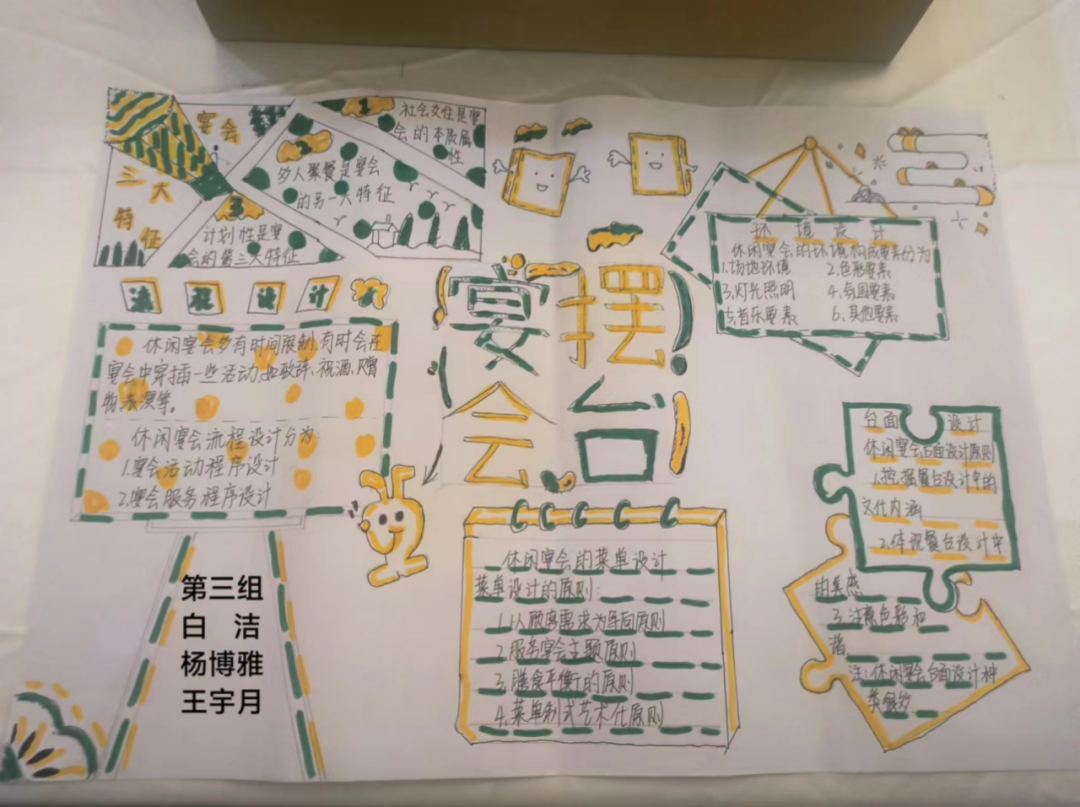 宴会
三大
特征
1
社会交往是宴
会的本质属
性
2
多人聚餐是宴会
的另一大特征
3
计划性是宴
会的第三大特征
流程设计
休闲宴会多有时间限制,有时会在
宴会中穿插一些活动,如致辞、祝酒、赠
物、表演等。
休闲宴会流程设计分为:
1.宴会活动程序设计
2.宴会服务程序设计
第三组
白 洁
杨博雅
王宇月
宴会
摆台
休闲宴会的菜单设计
菜单设计的原则:
1.以顾客需求为导向原则
2.服务宴会主题原则
3.膳食平衡的原则
4.菜单制式艺术化原则
环境设计
休闲宴会的环境构成要素分为
1.场地环境 2.色彩要素
3.灯光照明 4.氛围要素
5.音乐要素 6.其他要素
台面设计
休闲宴会台面设计原则
1.挖掘餐台设计中的
文化内涵
2.体现餐台设计中
的美感
3.注意色彩和
谐
注:休闲宴会台面设计种
类很多